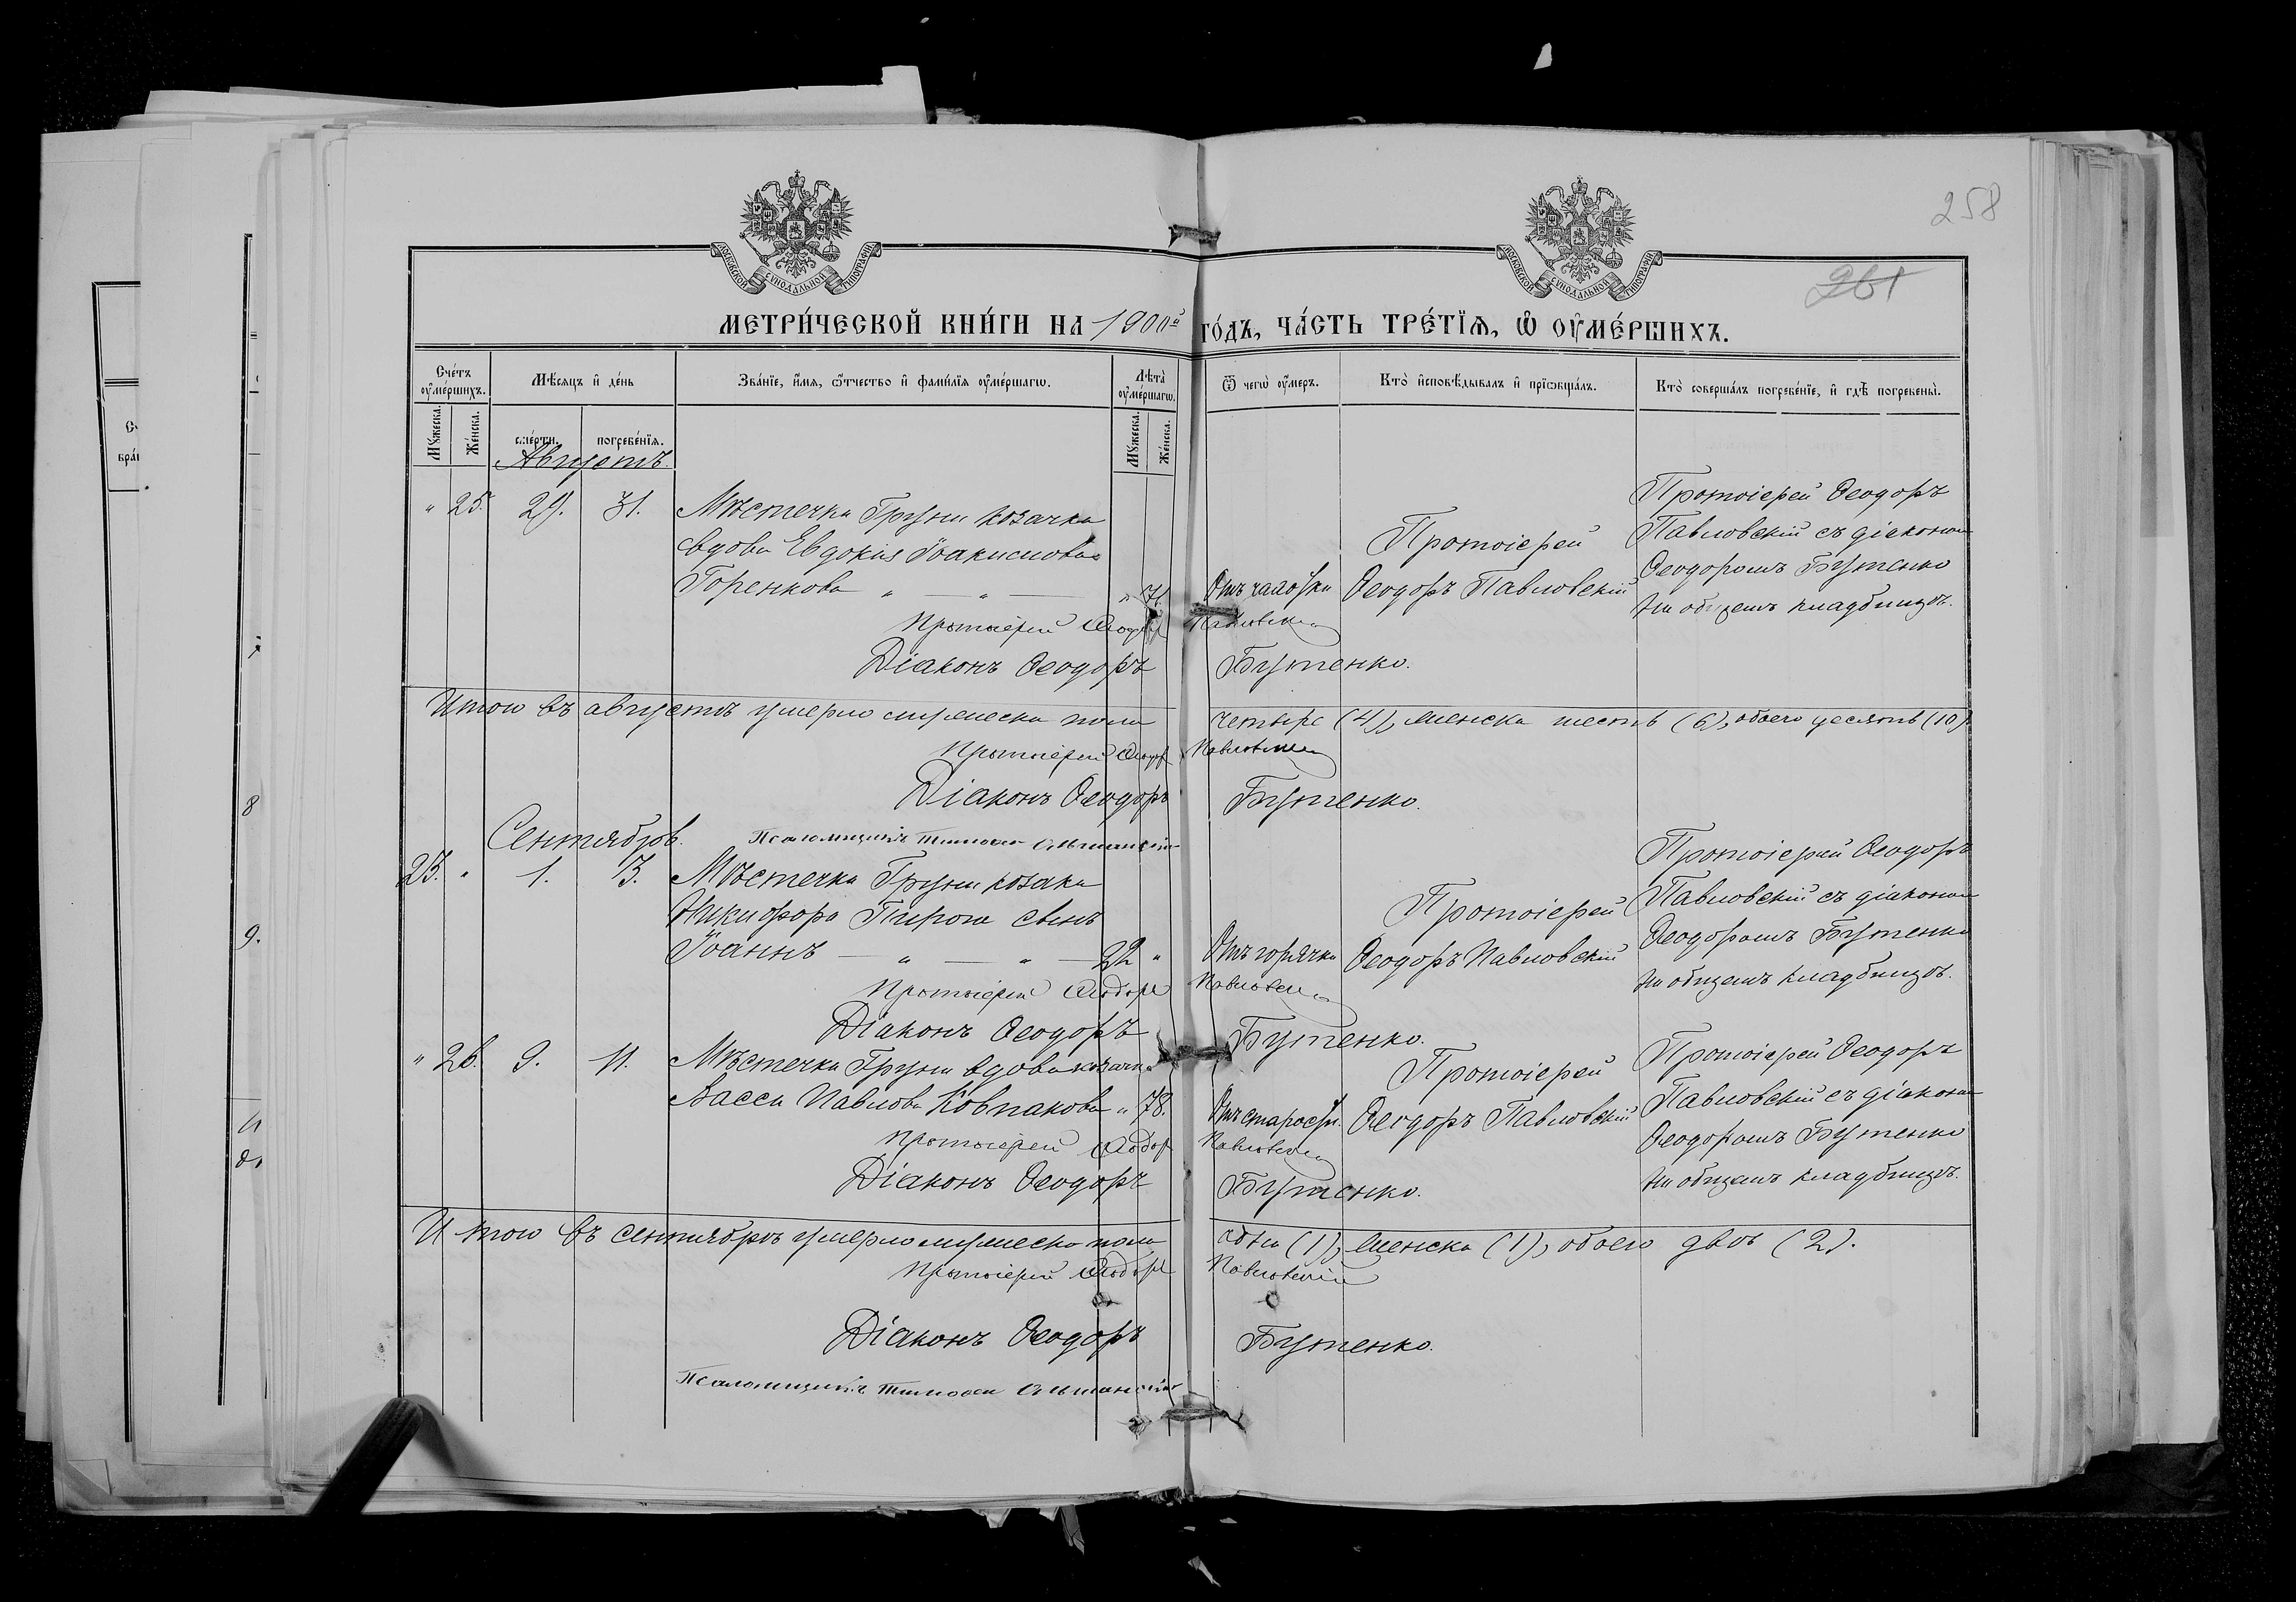 258
261
МОСКОВСКОЙ СУНОДАЛЬНОЙ ТИПОГРАФІИ
МОСКОВСКОЙ СУНОДАЛЬНОЙ ТИПОГРАФІИ
МЕТРИ́ЧЕСКОЙ КНИ́ГИ НА 1900й ГО́ДЪ, ЧА́СТЬ ТРЕ́ТІѦ, Ѡ ОУ҆МЕ́РШИХЪ.
Сче́тъ оу҆ме́ршихъ.
Мѣ́сяцъ и҆ де́нь
Зва́нїе, и҆́мѧ, ѻ҆́тчество и҆ фами́лїѧ оу҆ме́ршагѡ.
Лѣ́та оу҆ме́ршагѡ.
Ѿ чегѡ̀ оу҆́меръ.
Кто̀ и҆сповѣ́дывалъ и҆ прїѡбща́лъ.
Кто̀ соверша́лъ погребе́нїе, и҆ гдѣ̀ погребены̀.
Мꙋ́жеска. Же́нска. сме́рти. погребе́нїѧ. Мꙋ́жеска. Же́нска.
Августъ.
" 25. 29. 31. Мѣстечка Груни козачка
вдова Евдокія Іоакимова
Горенкова " — " — " 71.
Отъ чахотки
Протоіерей
Ѳеодоръ Павловскій
Протоіерей Ѳеодоръ
Павловскій съ діакономъ
Ѳеодоромъ Бутенко
на общемъ кладбищѣ.
Протоіерей Ѳеодоръ Павловскій
Діаконъ Ѳеодоръ Бутенко.
Итого въ августѣ умерло мужеска пола четыре (4), женска шесть (6), обоего десять (10).
Протоіерей Ѳеодоръ Павловскій
Діаконъ Ѳеодоръ Бутенко.
Псаломщикъ Тимоѳей Ольшанскій
Сентябрь.
23. " 1. 3. Мѣстечка Груни козака
Никифора Пирога сынъ
Іоаннъ — " — " — 22 "
Отъ горячки
Протоіерей
Ѳеодоръ Павловскій
Протоіерей Ѳеодоръ
Павловскій съ діакономъ
Ѳеодоромъ Бутенко
на общемъ кладбищѣ.
Протоіерей Ѳеодоръ Павловскій
Діаконъ Ѳеодоръ Бутенко.
" 26. 9. 11. Мѣстечка Груни вдова козачка
Васса Павлова Ковпакова " 78.
Отъ старости.
Протоіерей
Ѳеодоръ Павловскій
Протоіерей Ѳеодоръ
Павловскій съ діакономъ
Ѳеодоромъ Бутенко
на общемъ кладбищѣ.
Протоіерей Ѳеодоръ Павловскій
Діаконъ Ѳеодоръ Бутенко.
Итого въ сентябрѣ умерло мужеска пола одна (1), женска (1), обоего двѣ (2).
Протоіерей Ѳеодоръ Павловскій
Діаконъ Ѳеодоръ Бутенко.
Псаломщикъ Тимоѳей Ольшанскій